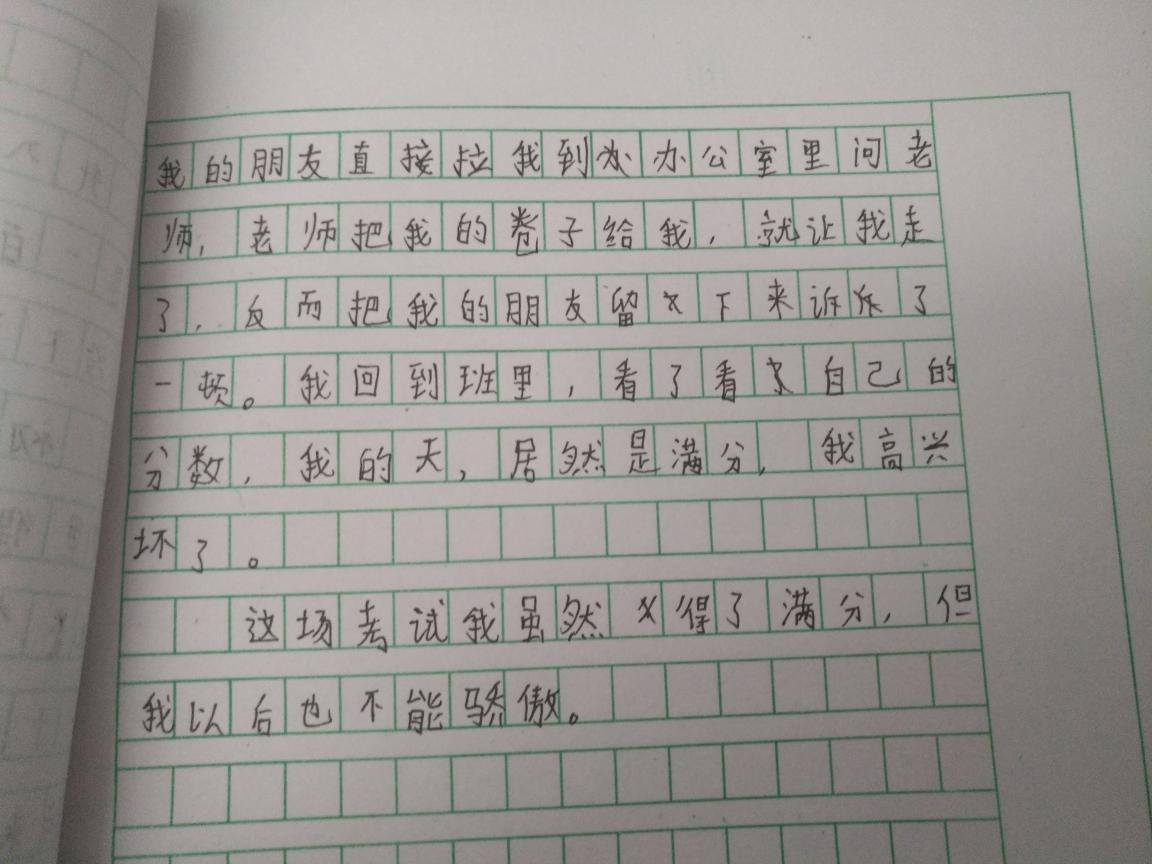 我的朋友直接拉我到办公室里问老
师，老师把我的卷子给我，就让我走
了，反而把我的朋友留下来诉斥了
一顿。我回到班里，看了看自己的
分数，我的天，居然是满分，我高兴
坏了。
这场考试我虽然得了满分，但
我以后也不能骄傲。